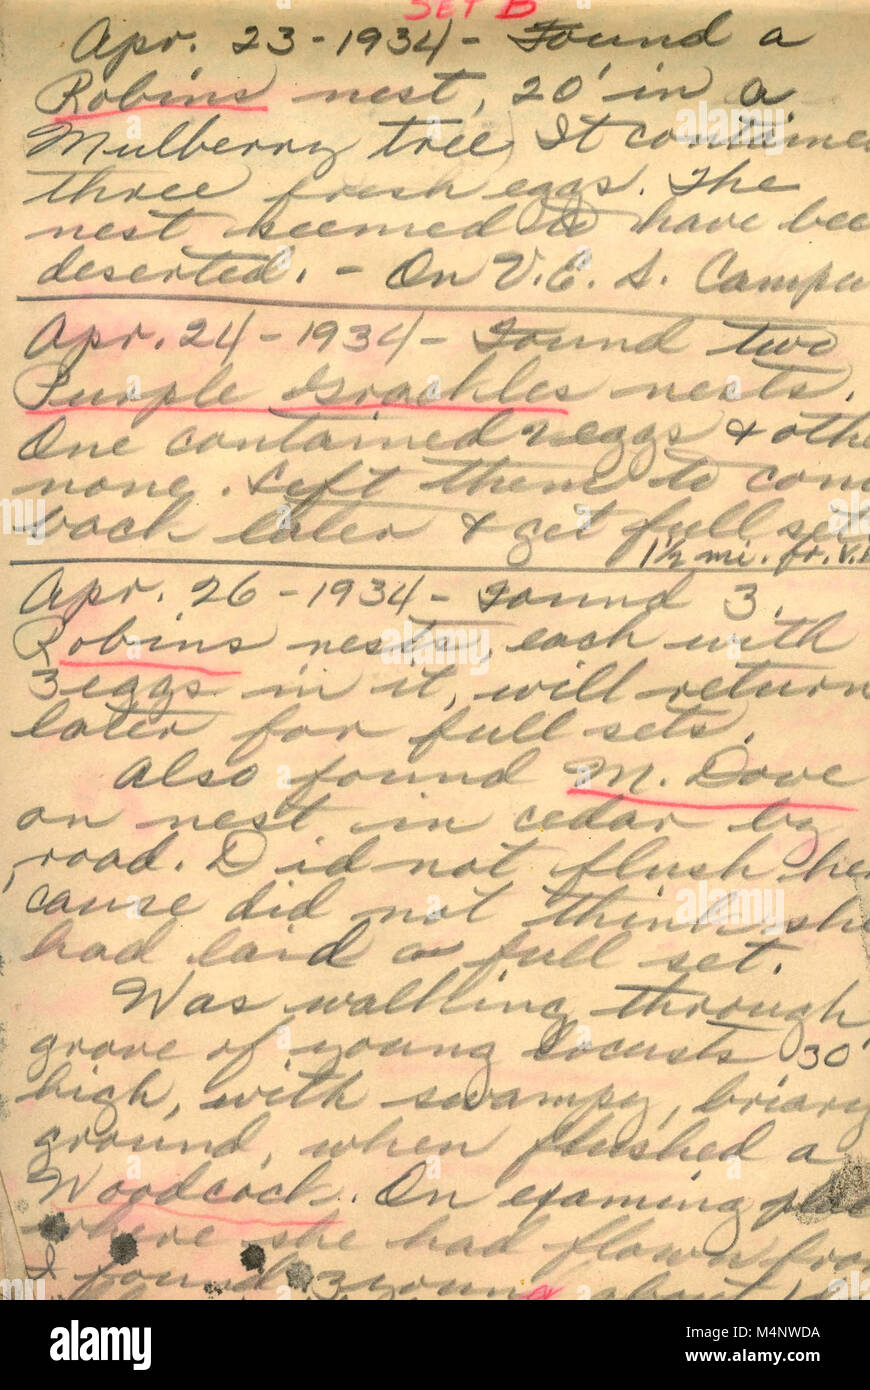 SET B
Apr. 23-1934- Found a
Robins nest, 20' in a
Mulberry tree, It containe
three fresh eggs. The
nest seemed to have bee
deserted. - On V.E.S. Campu
Apr. 24-1934- Found two
Purple Grackles nests.
One contained eggs & othe
none. Left them to com
back later & get full set
1½ mi. fr. V.
Apr. 26-1934- Found 3
Robins nests, each with
3 eggs in it, will return
later for full sets.
Also found M. Dove
on nest in cedar by
road. Did not flush her
cause did not think she
had laid a full set.
Was walking through
grove of young locusts 30'
high, with swampy, briary
ground, when flushed a
Woodcock. On examing pla
where she had flown fro
I found 3 young about
alamy stock photo
Image ID: M4NWDA
www.alamy.com